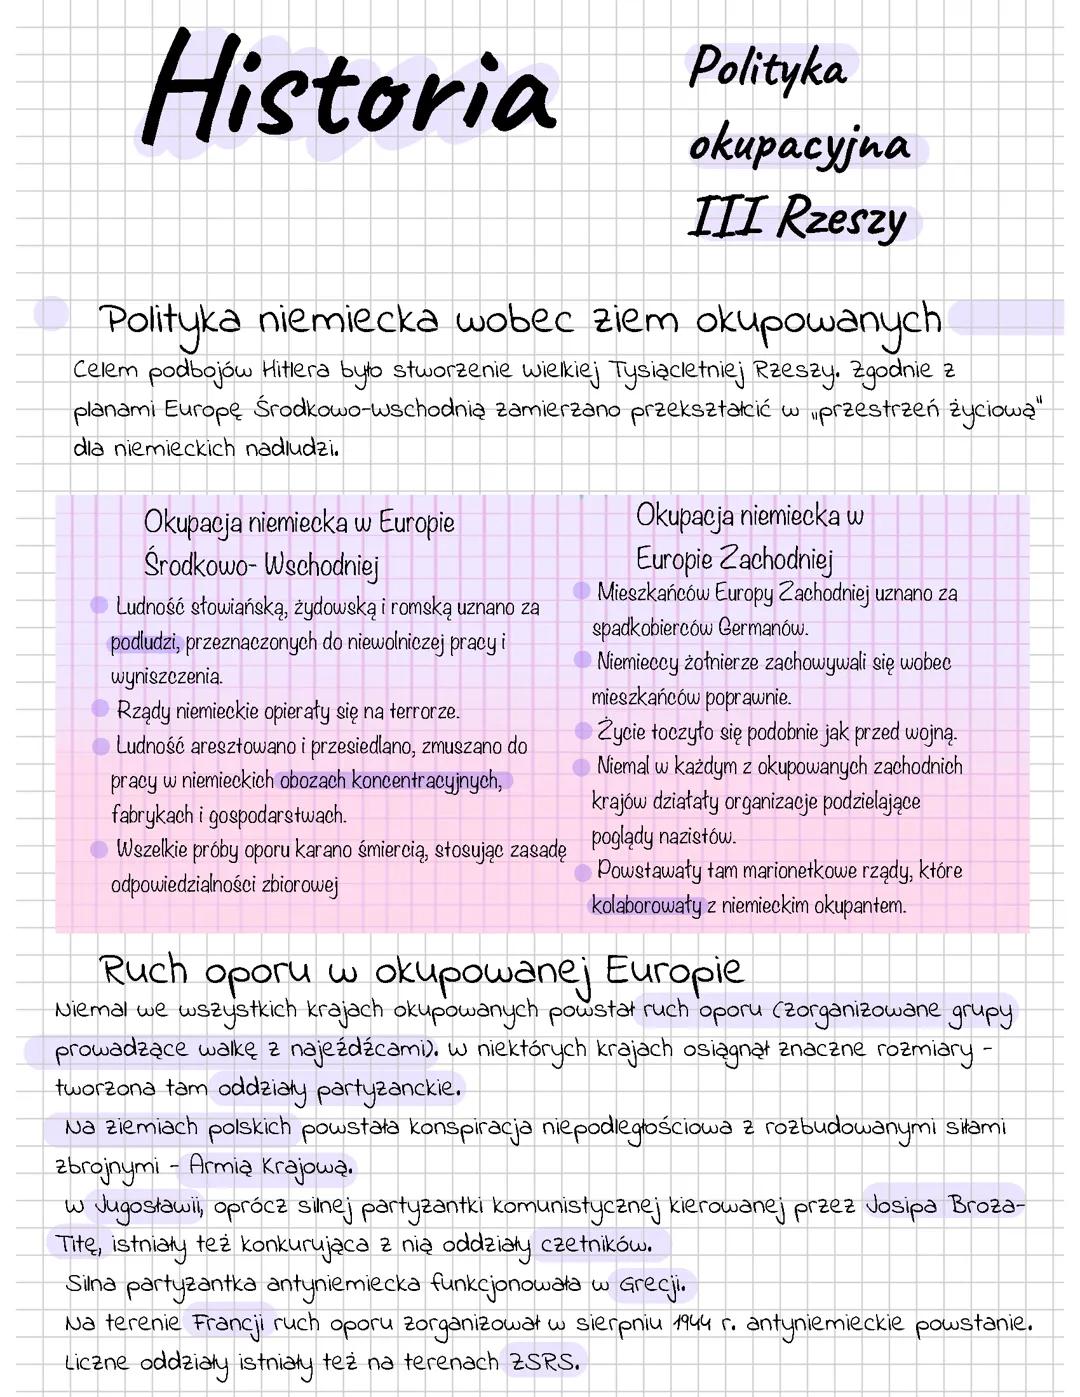 Historia
Polityka
okupacyjna
III Rzeszy
Polityka niemiecka wobec ziem okupowanych
Celem podbojów Hitlera było stworzenie wielkiej Tysiącletniej Rzeszy. Zgodnie z
planami Europę Środkowo-wschodnią zamierzano przekształcić w „przestrzeń życiową"
dla niemieckich nadludzi.
Okupacja niemiecka w Europie
Środkowo- Wschodniej
Ludność słowiańską, żydowską i romską uznano za
podludzi, przeznaczonych do niewolniczej pracy i
wyniszczenia.
Rządy niemieckie opierały się na terrorze.
Ludność aresztowano i przesiedlano, zmuszano do
pracy w niemieckich obozach koncentracyjnych,
fabrykach i gospodarstwach.
Wszelkie próby oporu karano śmiercią, stosując zasadę
odpowiedzialności zbiorowej
Okupacja niemiecka w
Europie Zachodniej
Mieszkańców Europy Zachodniej uznano za
spadkobierców Germanów.
Niemieccy żołnierze zachowywali się wobec
mieszkańców poprawnie.
Życie toczyło się podobnie jak przed wojną.
Niemal w każdym z okupowanych zachodnich
krajów działały organizacje podzielające
poglądy nazistów.
Powstawały tam marionetkowe rządy, które
kolaborowały z niemieckim okupantem.
Ruch oporu w okupowanej Europie
Niemal we wszystkich krajach okupowanych powstał ruch oporu (zorganizowane grupy
prowadzące walkę z najeźdźcami). W niektórych krajach osiągnął znaczne rozmiary -
tworzona tam oddziały partyzanckie.
Na ziemiach polskich powstała konspiracja niepodległościowa z rozbudowanymi siłami
zbrojnymi - Armią Krajową.
W Jugosławii, oprócz silnej partyzantki komunistycznej kierowanej przez Josipa Broza-
Titę, istniały też konkurująca z nią oddziały czetników.
Silna partyzantka antyniemiecka funkcjonowała w Grecji.
Na terenie Francji ruch oporu zorganizował w sierpniu 1944 r. antyniemieckie powstanie.
Liczne oddziały istniały też na terenach ZSRS.